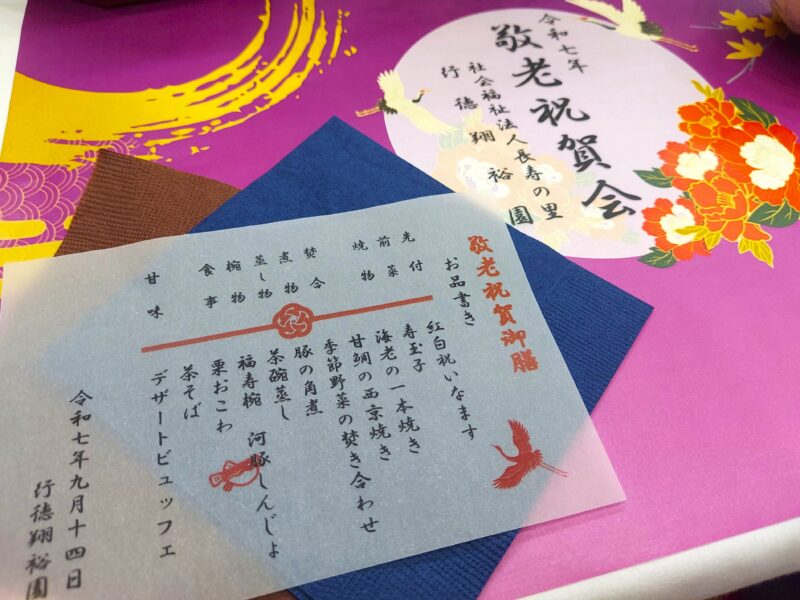 令和七年
敬老祝賀会
社会福祉法人長寿の里
行徳翔裕園
敬老祝賀御膳
お品書き
先付
前菜
焼物
焚合
煮物
蒸し物
椀物
食事
甘味
紅白祝いなます
寿玉子
海老の一本焼き
甘鯛の西京焼き
季節野菜の焚き合わせ
豚の角煮
茶碗蒸し
福寿椀 河豚しんじょ
栗おこわ
茶そば
デザートビュッフェ
令和七年九月十四日
行徳翔裕園